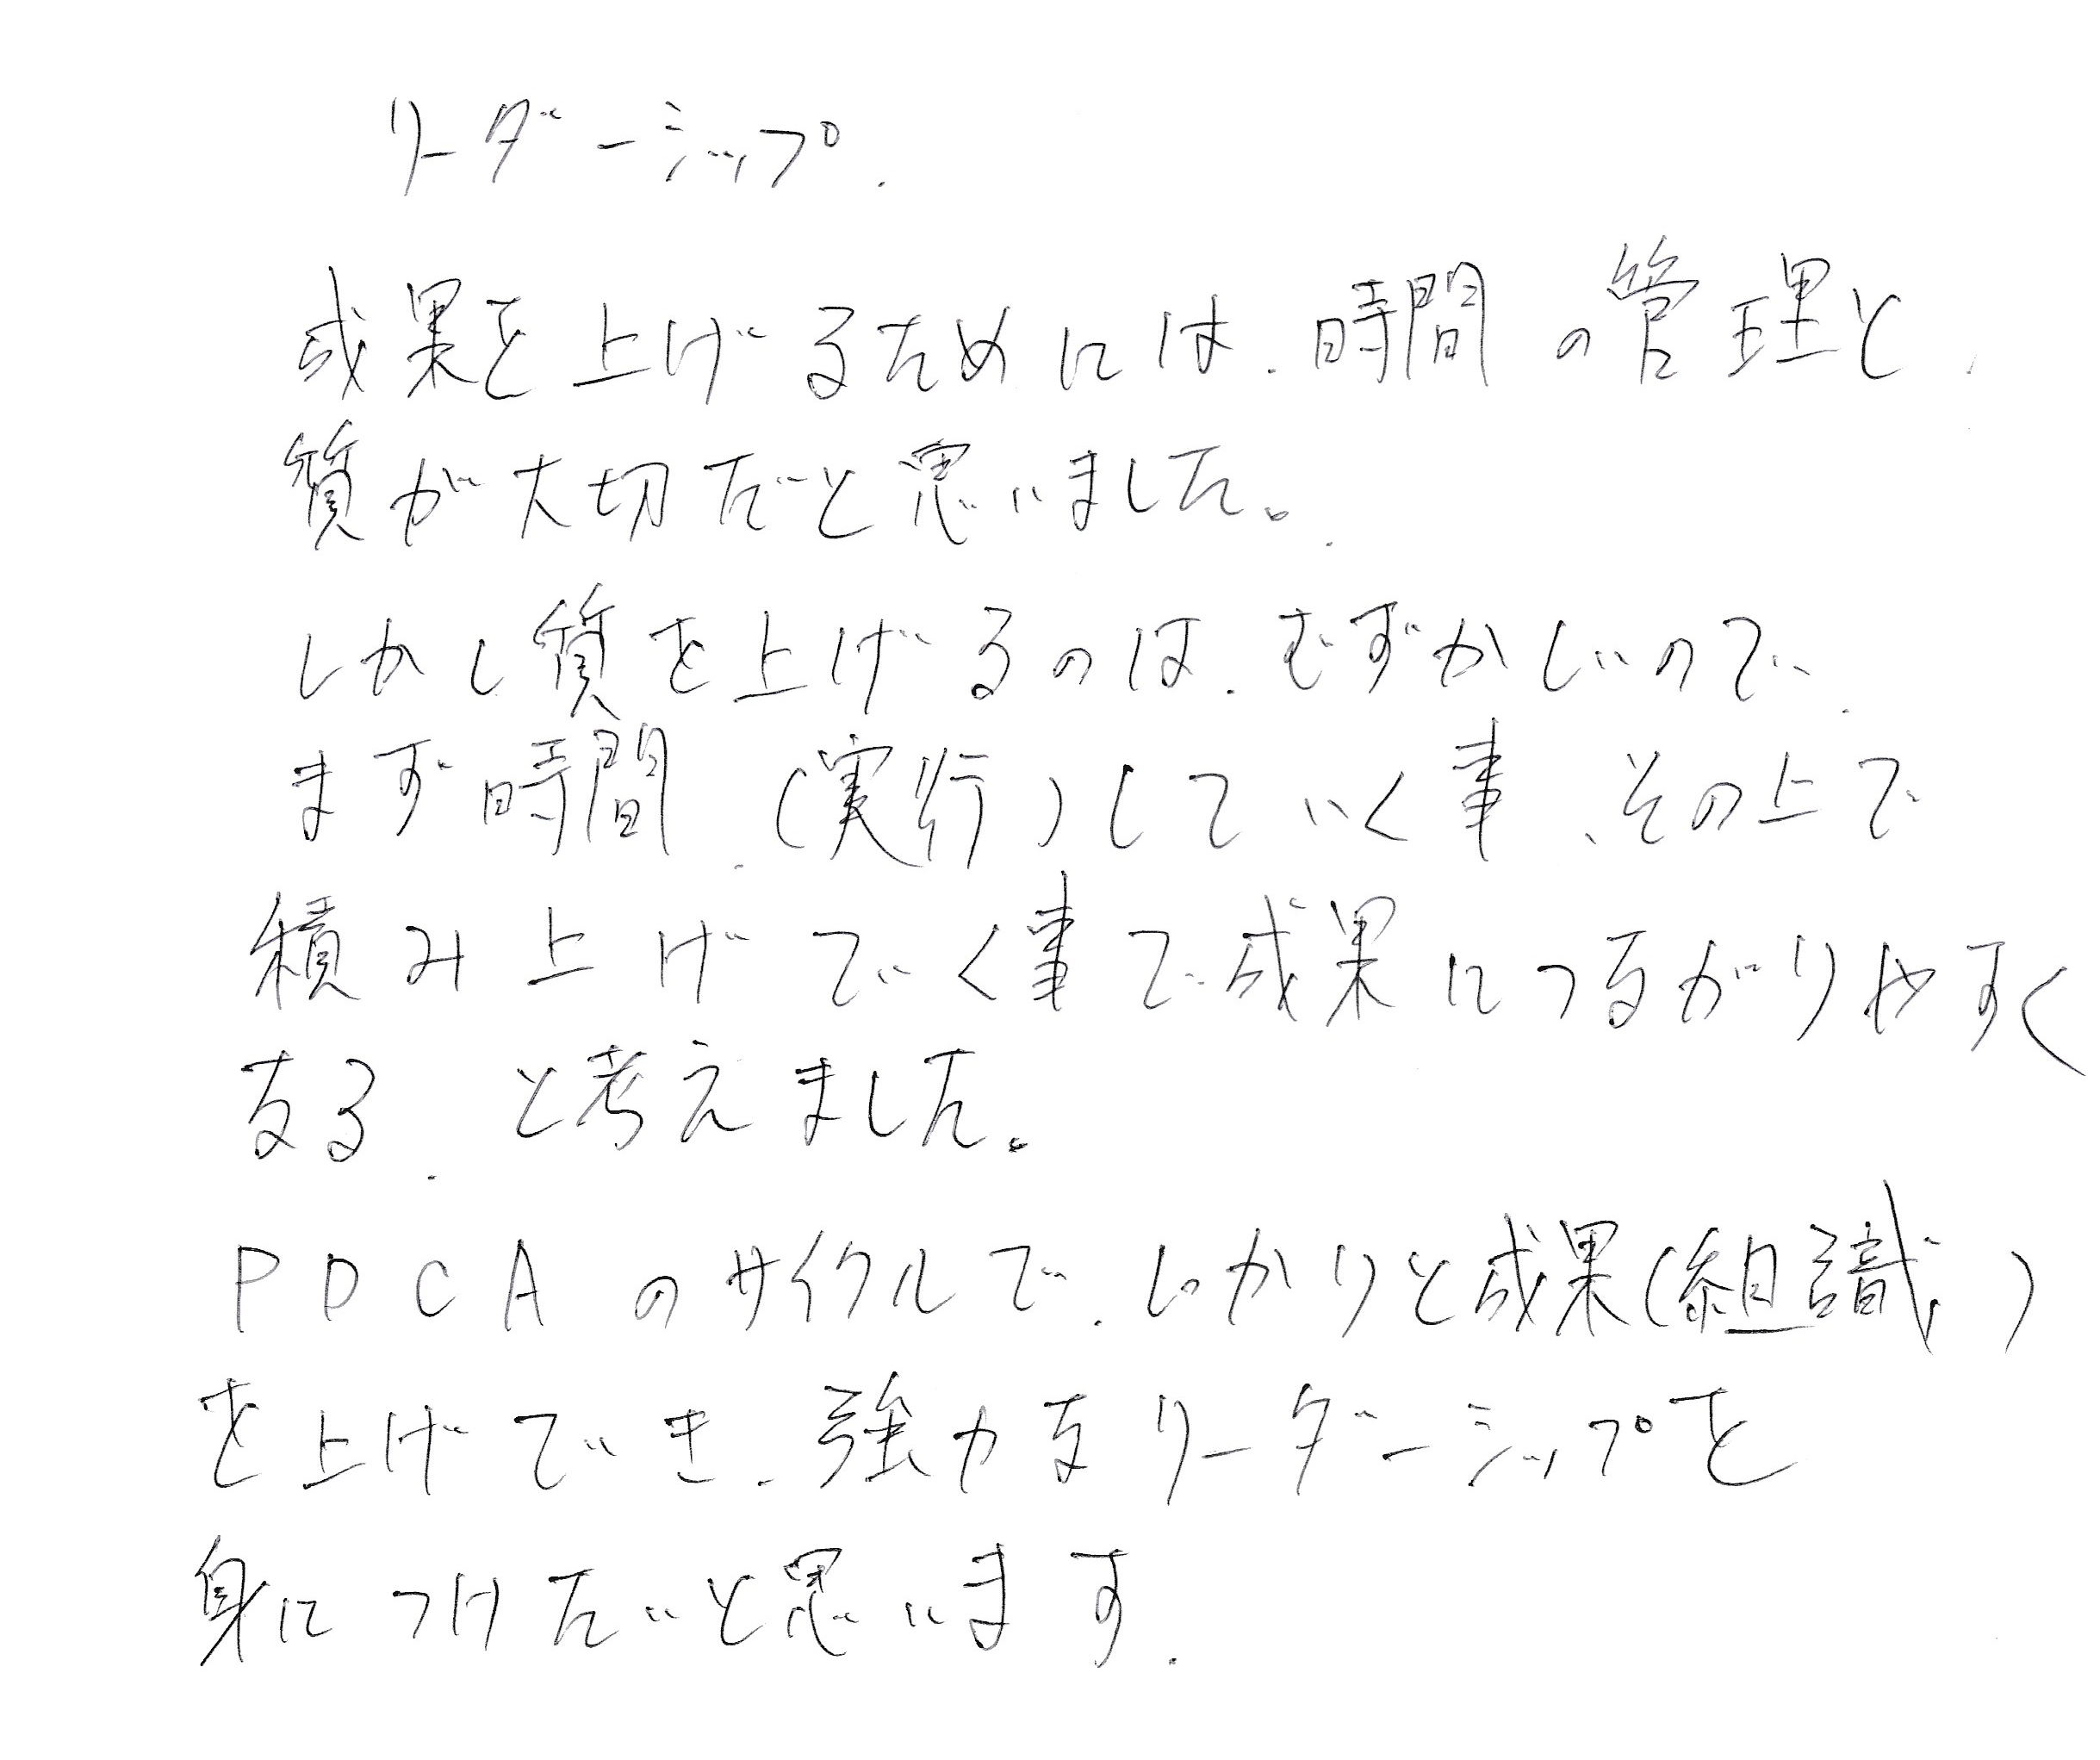 リーダーシップ.
成果を上げるためには.時間の管理と
質が大切だと思いました。
しかし質を上げるのは.むずかしいので.
まず時間.(実行)していく事、その上で
積み上げていく事で成果につながりやすく
なる.と考えました。
PDCAのサイクルで.しっかりと成果(組識)
を上げていき.強力なリーダーシップを
身につけたいと思います.